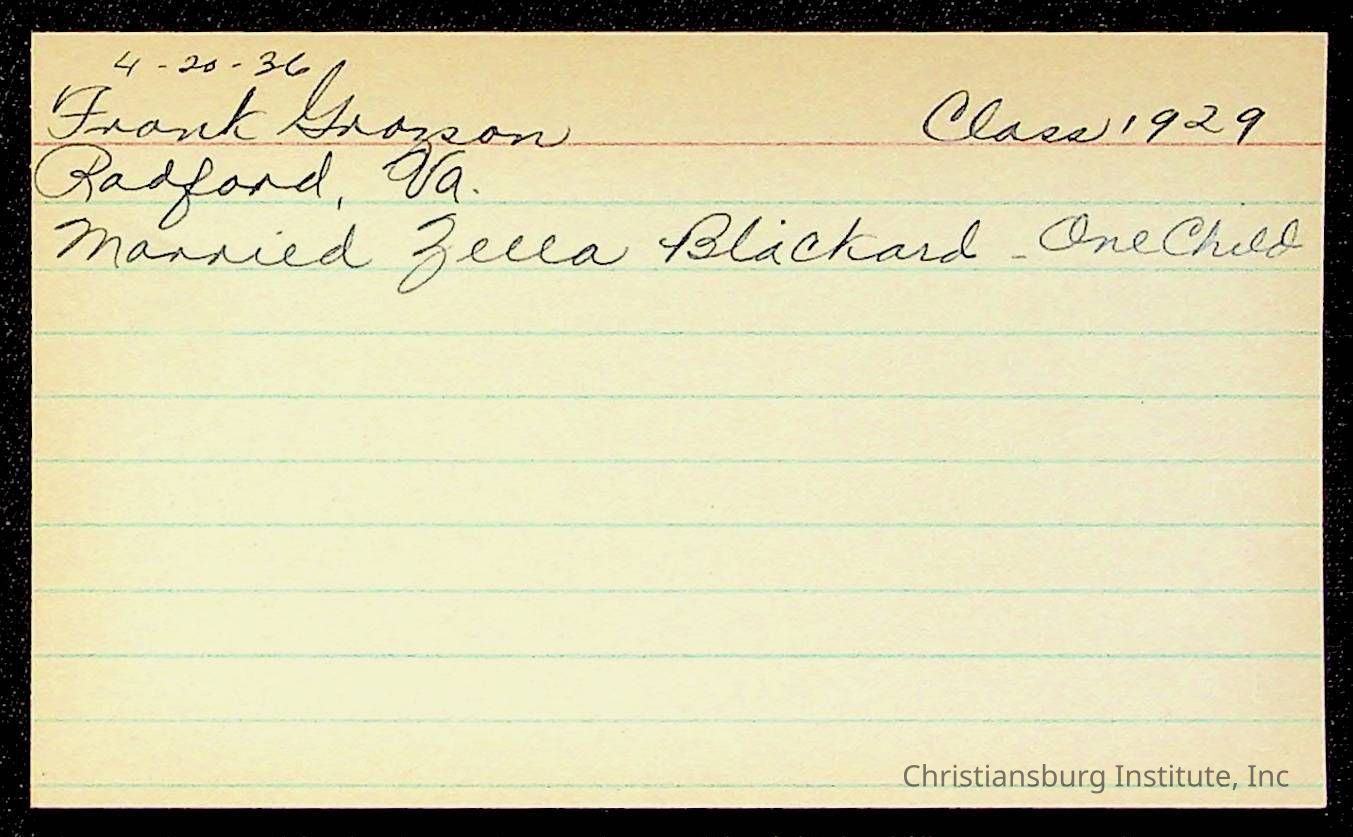 4-20-36
Frank Grayson Class 1929
Radford, Va.
Married Zella Blackard - One Child
Christiansburg Institute, Inc